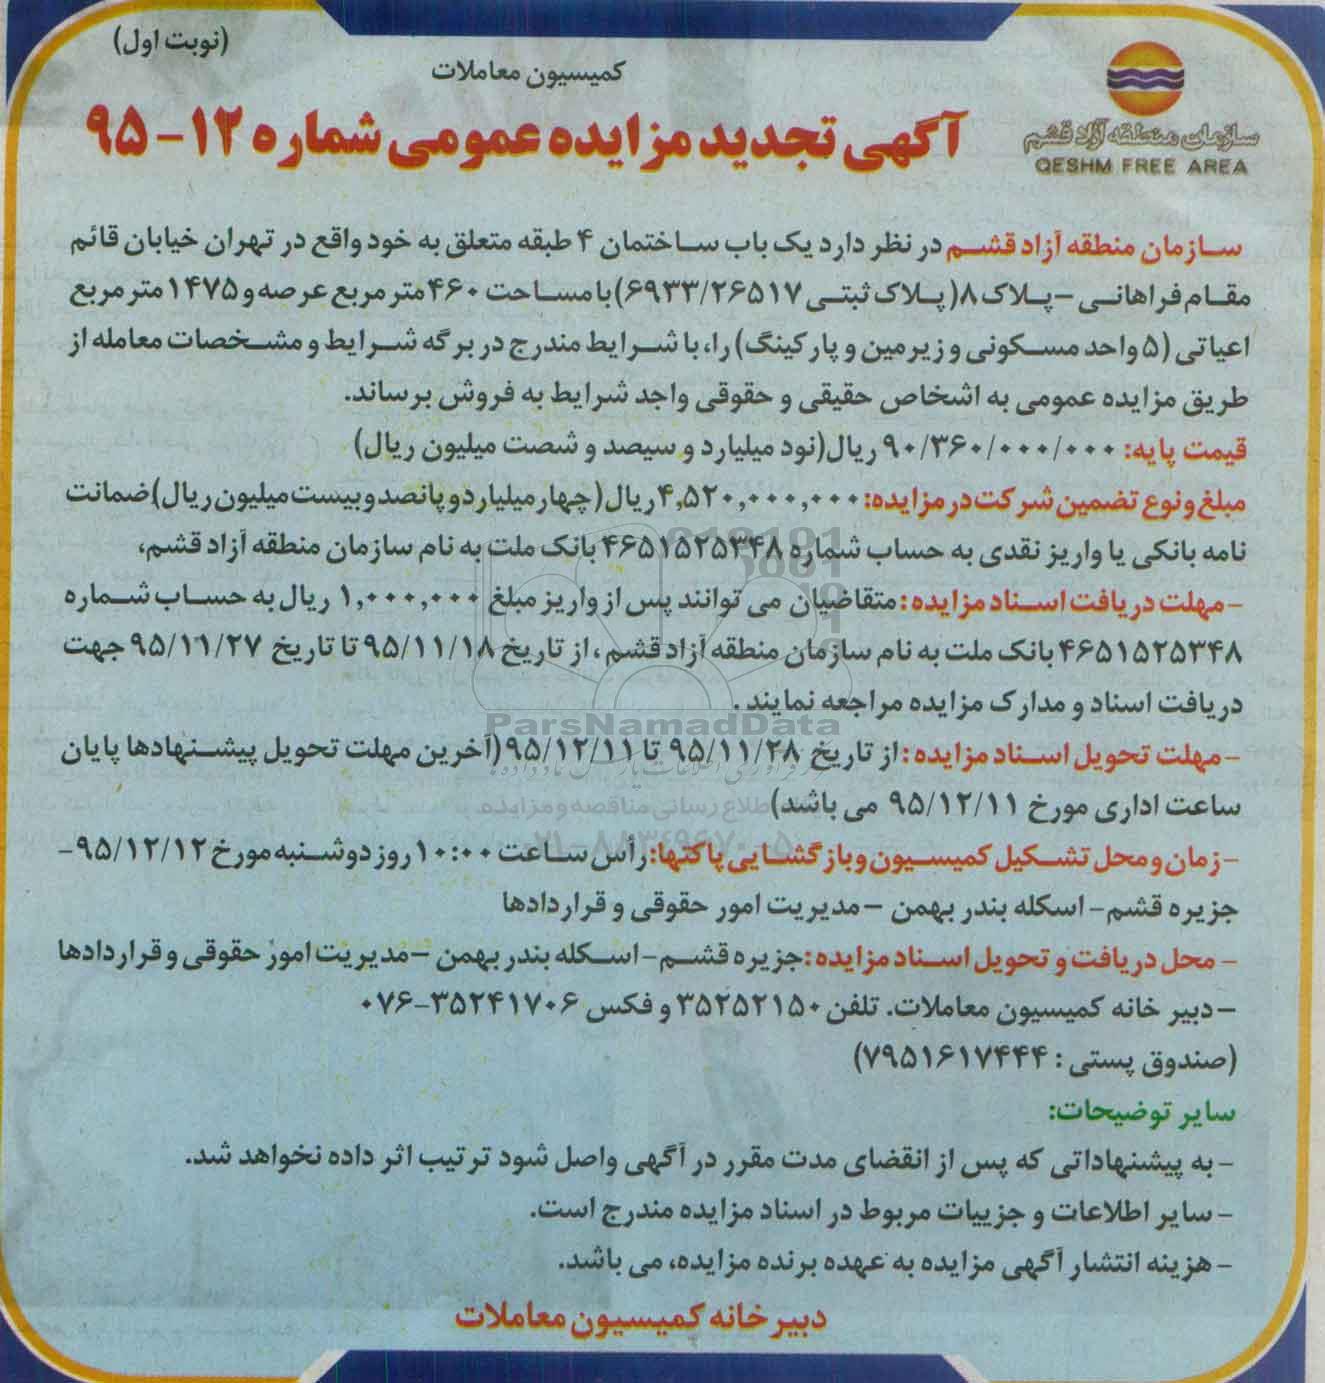 (نوبت اول)
کمیسیون معاملات
سازمان منطقه آزاد قشم
QESHM FREE AREA
آگهی تجدید مزایده عمومی شماره ۱۲- ۹۵
سازمان منطقه آزاد قشم در نظر دارد یک باب ساختمان ۴ طبقه متعلق به خود واقع در تهران خیابان قائم
مقام فراهانی – پلاک ۸( پلاک ثبتی ۶۹۳۳/۲۶۵۱۷) با مساحت ۴۶۰ متر مربع عرصه و ۱۴۷۵ متر مربع
اعیانی (۵ واحد مسکونی و زیرمین و پارکینگ) را، با شرایط مندرج در برگه شرایط و مشخصات معامله از
طریق مزایده عمومی به اشخاص حقیقی و حقوقی واجد شرایط به فروش برساند.
قیمت پایه: ۹۰/۳۶۰/۰۰۰/۰۰۰ ریال(نود میلیارد و سیصد و شصت میلیون ریال)
مبلغ و نوع تضمین شرکت در مزایده: ۴,۵۲۰,۰۰۰,۰۰۰ ریال( چهار میلیارد و پانصد و بیست میلیون ریال)ضمانت
نامه بانکی یا واریز نقدی به حساب شماره ۴۶۵۱۵۲۵۳۴۸ بانک ملت به نام سازمان منطقه آزاد قشم،
- مهلت دریافت اسناد مزایده : متقاضیان می توانند پس از واریز مبلغ ۱,۰۰۰,۰۰۰ ریال به حساب شماره
۴۶۵۱۵۲۵۳۴۸ بانک ملت به نام سازمان منطقه آزاد قشم ، از تاریخ ۹۵/۱۱/۱۸ تا تاریخ ۹۵/۱۱/۲۷ جهت
دریافت اسناد و مدارک مزایده مراجعه نمایند .
ParsNamadData
- مهلت تحویل اسناد مزایده : از تاریخ ۹۵/۱۱/۲۸ تا ۹۵/۱۲/۱۱ (آخرین مهلت تحویل پیشنهادها پایان
ساعت اداری مورخ ۹۵/۱۲/۱۱ می باشد)
- زمان و محل تشکیل کمیسیون و بازگشایی پاکتها: رأس ساعت ۱۰:۰۰ روز دوشنبه مورخ ۹۵/۱۲/۱۲-
جزیره قشم- اسکله بندر بهمن – مدیریت امور حقوقی و قراردادها
- محل دریافت و تحویل اسناد مزایده : جزیره قشم- اسکله بندر بهمن – مدیریت امور حقوقی و قراردادها
– دبیر خانه کمیسیون معاملات. تلفن ۳۵۲۵۲۱۵۰ و فکس ۳۵۲۴۱۷۰۶-۰۷۶
(صندوق پستی : ۷۹۵۱۶۱۷۴۴۴)
سایر توضیحات:
- به پیشنهاداتی که پس از انقضای مدت مقرر در آگهی واصل شود ترتیب اثر داده نخواهد شد.
- سایر اطلاعات و جزییات مربوط در اسناد مزایده مندرج است.
- هزینه انتشار آگهی مزایده به عهده برنده مزایده، می باشد.
دبیر خانه کمیسیون معاملات